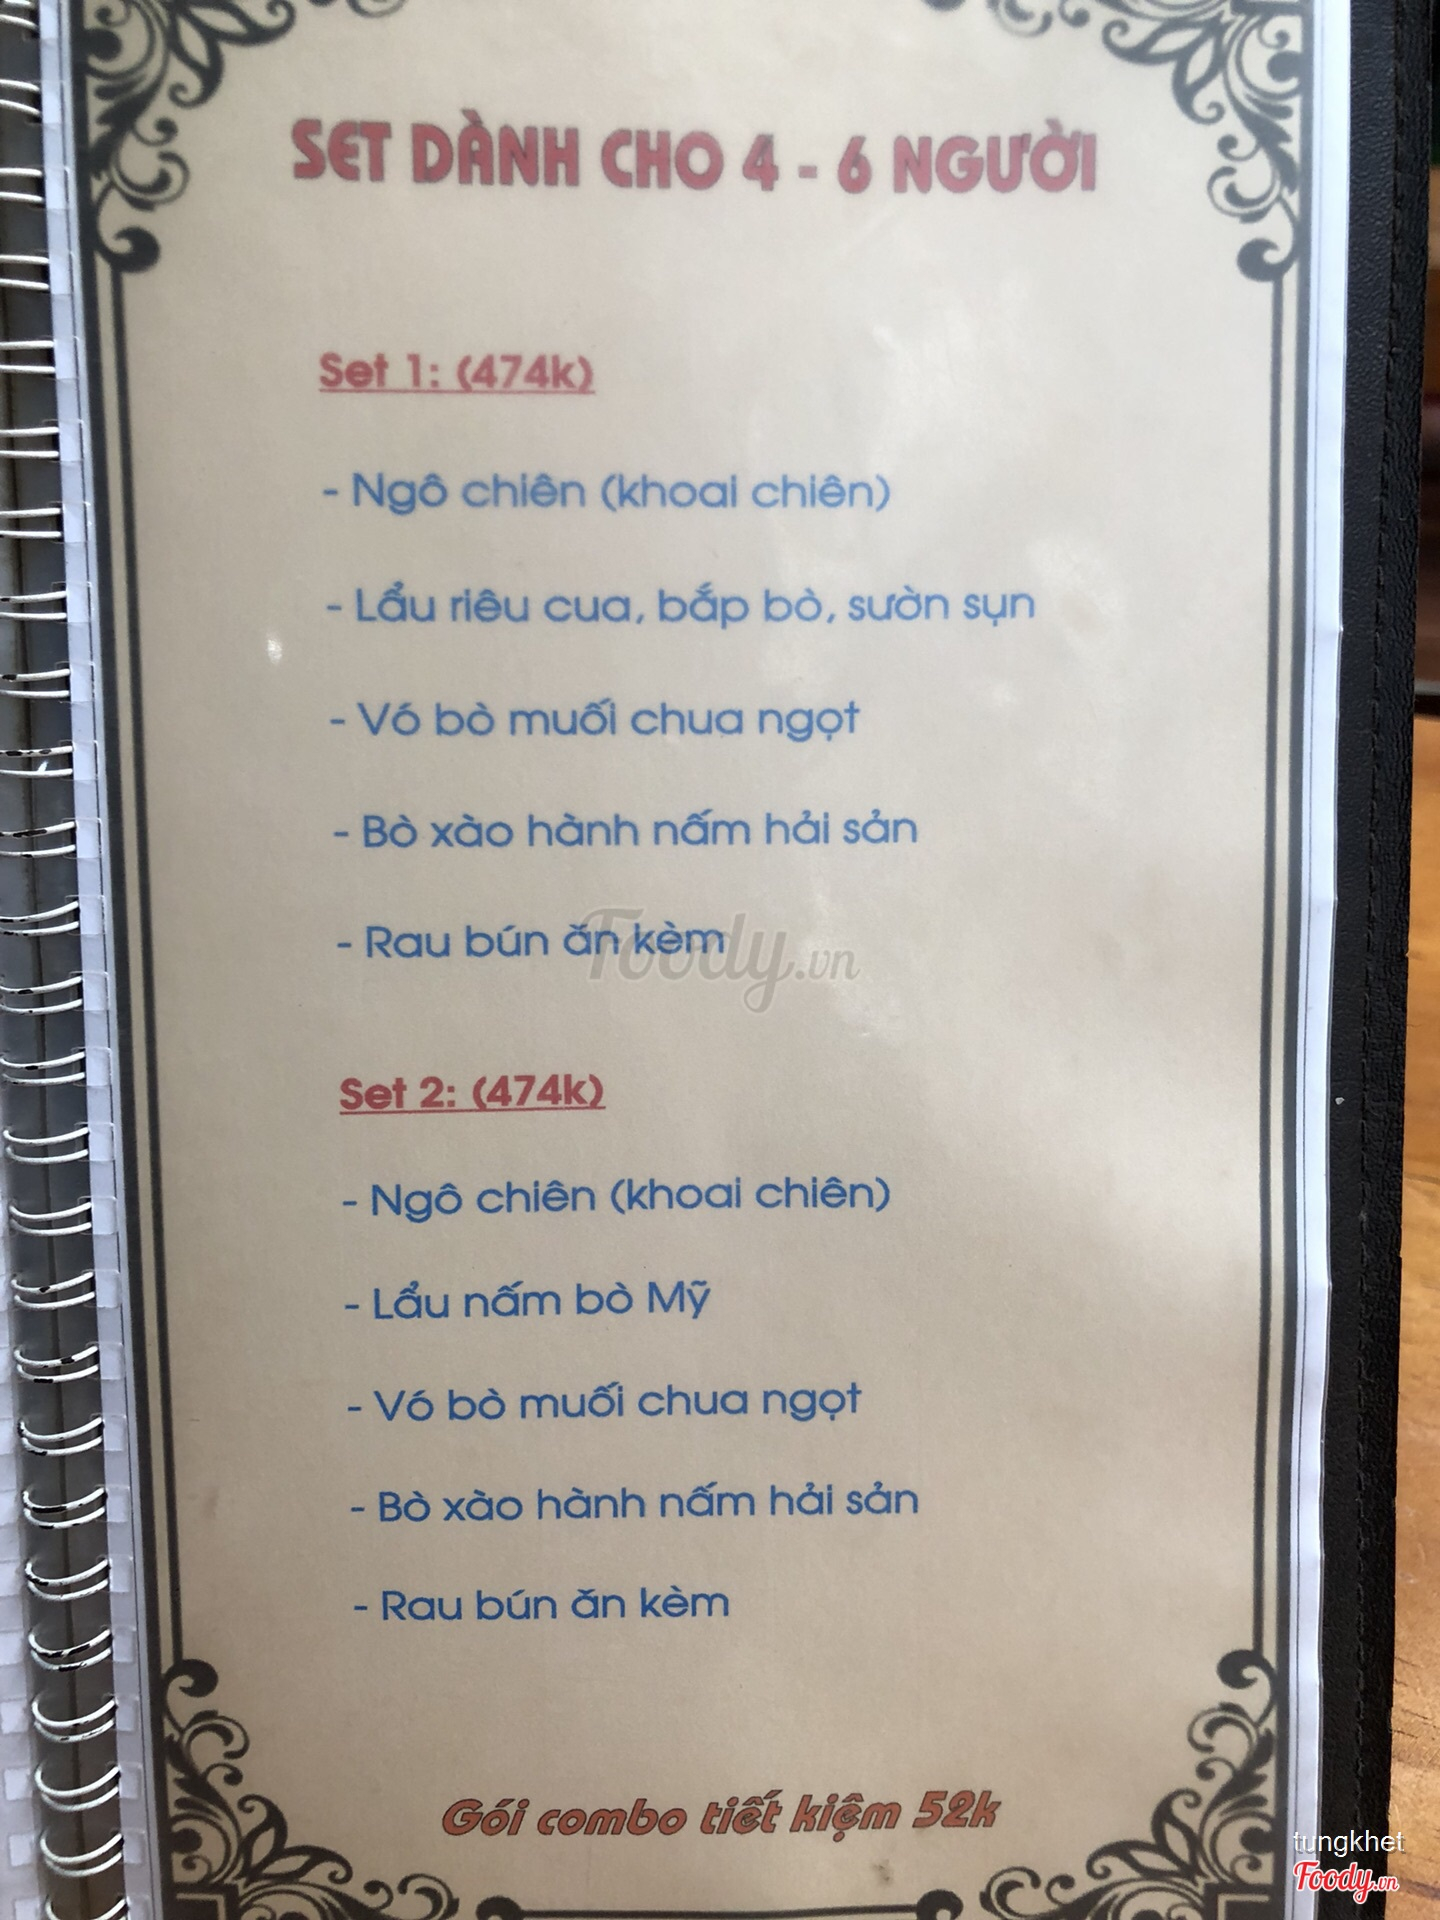 SET DÀNH CHO 4 - 6 NGƯỜI
Set 1: (474k)
- Ngô chiên (khoai chiên)
- Lẩu riêu cua, bắp bò, sườn sụn
- Vó bò muối chua ngọt
- Bò xào hành nấm hải sản
- Rau bún ăn kèm
Foody.vn
Set 2: (474k)
- Ngô chiên (khoai chiên)
- Lẩu nấm bò Mỹ
- Vó bò muối chua ngọt
- Bò xào hành nấm hải sản
- Rau bún ăn kèm
Gói combo tiết kiệm 52k
tungkhet
Foody.vn